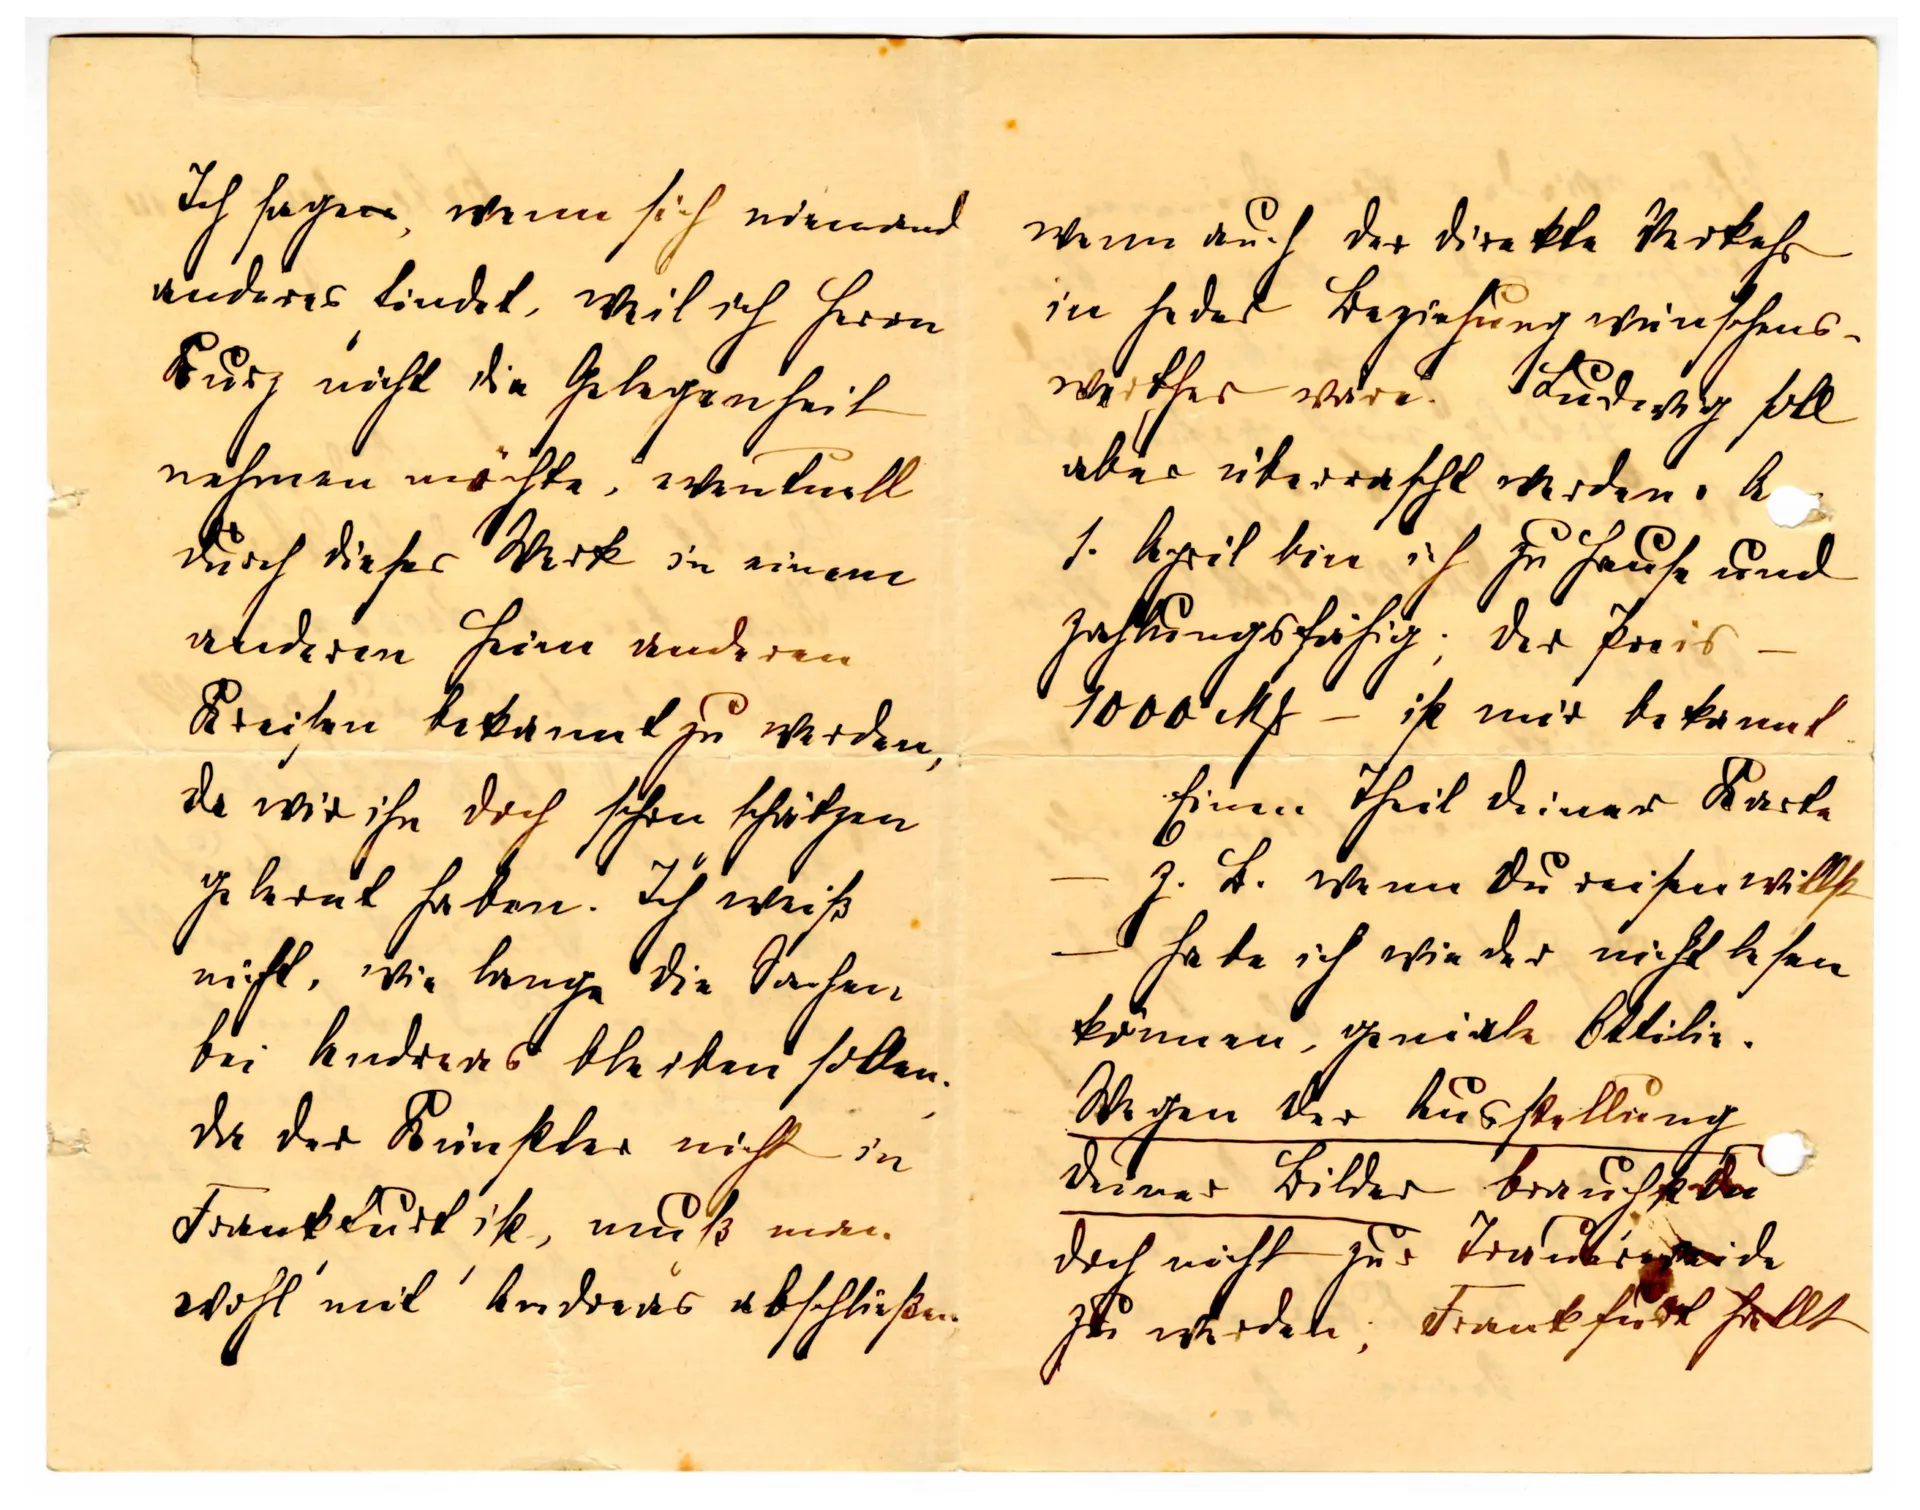 Ich sage, wenn sich niemand
anderes findet, weil ich Herrn
Kurz nicht die Gelegenheit
nehmen möchte, eventuell
durch dieses Werk in einem
anderen Heim anderen
Kreisen bekannt zu werden,
da wir ihn doch schon schätzen
gelernt haben. Ich weiß
nicht, wie lange die Sachen
bei Andreas bleiben sollen.
da der Künstler nicht in
Frankfurt ist, muß man
wohl mit Andreas abschließen
wenn auch der direkte Verkehr
in jeder Beziehung wünschens-
werther wäre. Ludwig soll
aber überrascht werden. A
1. April bin ich zu Hause und
zahlungsfähig; der Preis –
1000 Mk – ist mir bekannt.
Einen Theil deiner Karte
– z. B. wenn Du reisen willst
– habe ich wieder nicht lesen
können, geniale Ottilie.
Wegen der Ausstellung
deiner Bilder brauchst Du
doch nicht zur Trauerweide
zu werden; Frankfurt